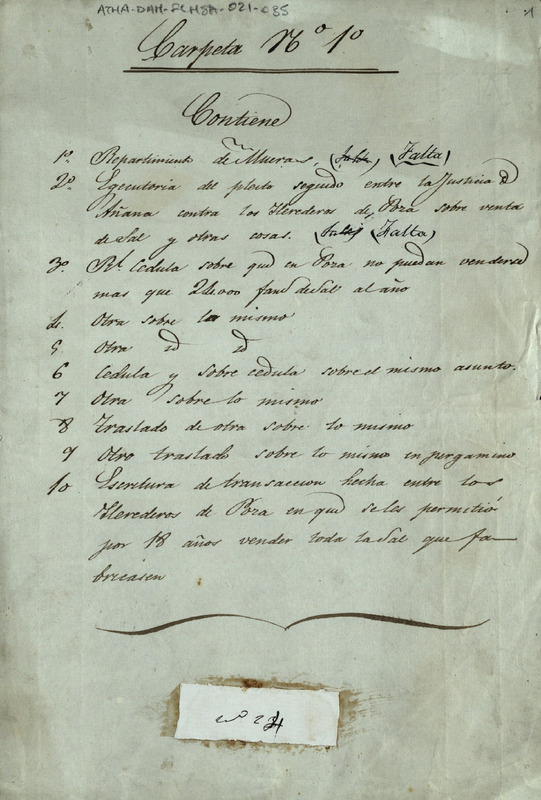 ATHA-DAH-FCMSA-021-035
1
Carpeta Nº 1º
Contiene
1º Repartimiento de Mueras, (falta) (Falta)
2º Egecutoria del pleito seguido entre la Justicia d
Añana contra los Herederos de Poza sobre venta
de Sal y otras cosas. (falta) (Falta)
3º Rl. Cedula sobre que en Poza no puedan venderse
mas que 24.000 fans de Sal al año
4. Otra sobre lo mismo
5 Otra id id
6 Cedula y sobre cedula sobre el mismo asunto.
7 Otra sobre lo mismo
8 Traslado de otra sobre lo mismo
9 Otro traslado sobre lo mismo en pergamino
10 Escritura de transaccion hecha entre los
Herederos de Poza en que se les permitió
por 18 años vender toda la Sal que fa-
bricasen
nº 24